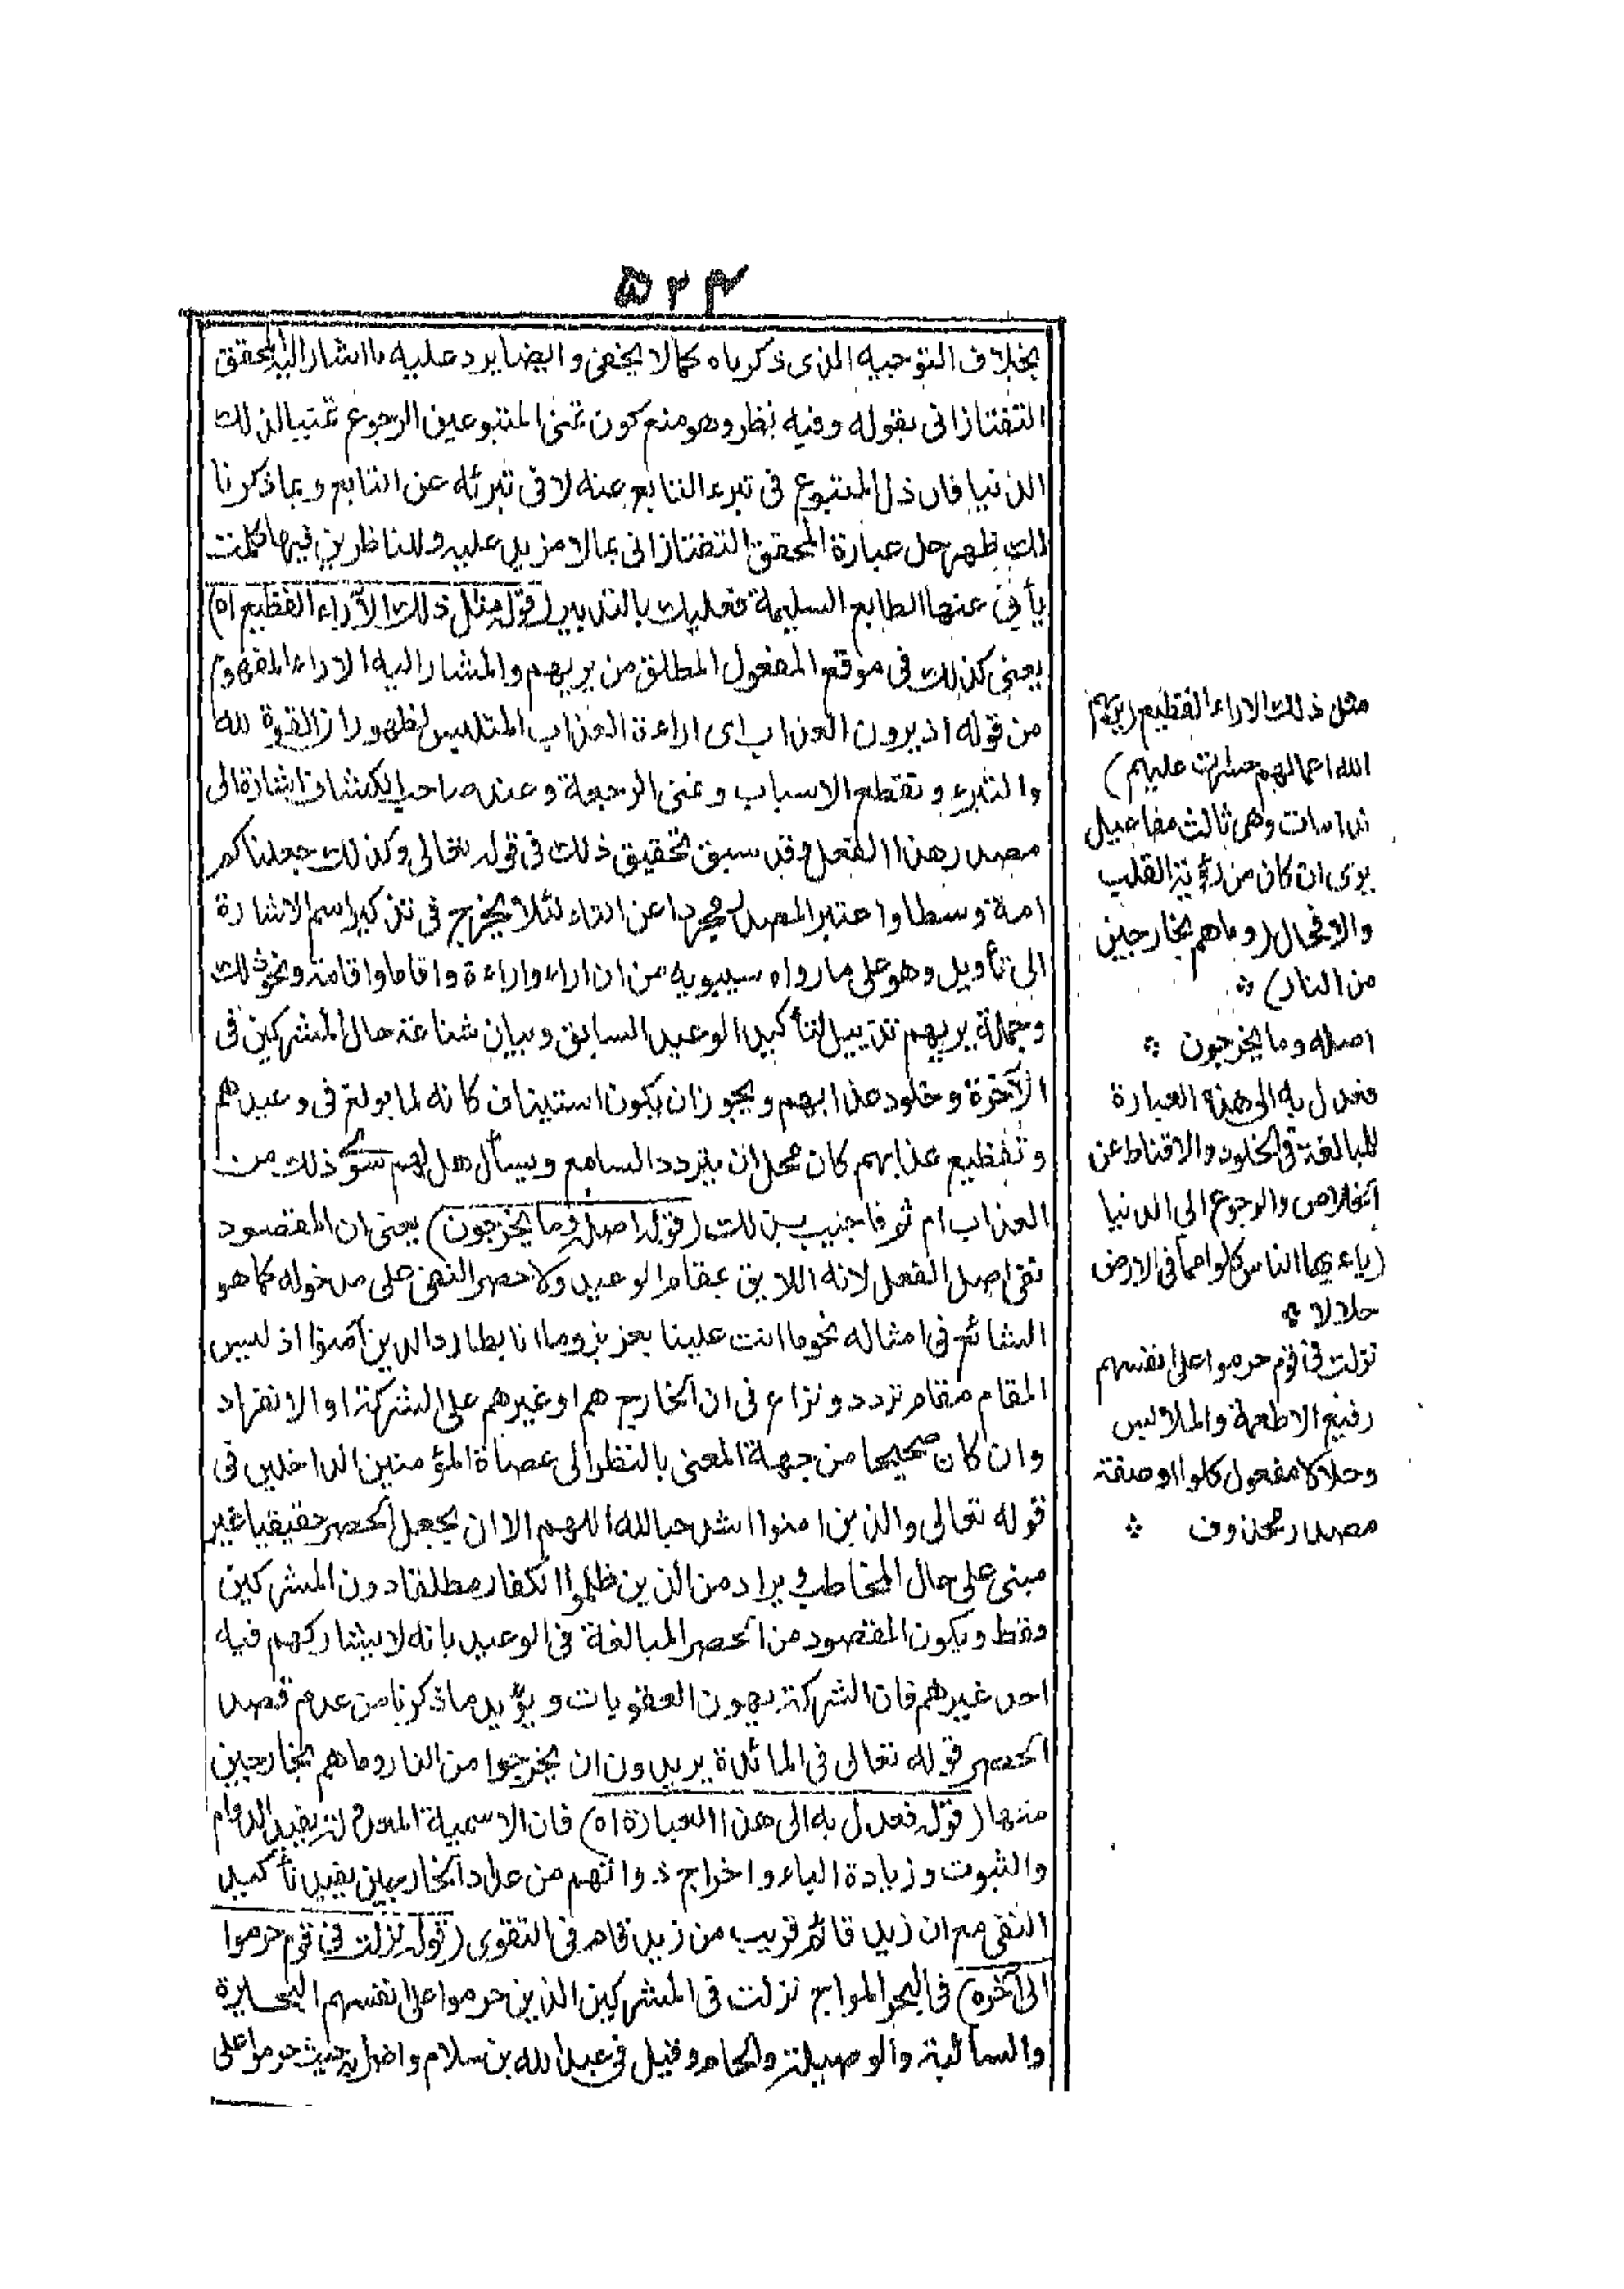 ۵۲۴
بخلاف التوجيه الذى ذكرناه كمالا يخفى و ايضا يرد عليه ما اشار اليه المحقق
التفتازانى بقوله وفيه نظر وهو منع كون تمنى المتبوعين الرجوع تمنيا لذلك
الدنيا فان ذل المتبوع فى تبرء التابع عنه لا فى تبرئه عن التابع وبما ذكرنا
لك ظهر حل عبارة المحقق التفتازانى بما لا مزيد عليه وللناظرين فيها كلمات
يأبى عنها الطابع السليمة فعليك بالتدبير (قوله مثل ذلك الآراء الفظيع اه)
يعنى كذلك فى موقع المفعول المطلق من يريهم والمشار اليه الاراء المفهوم
من قوله اذ يرون العذاب اى اراءة العذاب المتلبس لظهور ان القوة لله
والتبرء وتقطع الاسباب وتمنى الرجعة وعند صاحب الكشاف اشارة الى
مصدر هذا الفعل وقد سبق تحقيق ذلك فى قوله تعالى وكذلك جعلناكم
امة وسطا واعتبر المصدر مجردا عن التاء لئلا يخرج فى تذكير اسم الاشارة
الى تأويل وهو على مارواه سيبويه من ان اراء واراءة واقاما واقامة ونحو ذلك
وجملة يريهم تذييل لتأكيد الوعيد السابق وبيان شناعة حال المشركين فى
الآخرة وخلود عذابهم ويجوز ان يكون استيناف كانه لما بولغ فى وعيدهم
وتفظيع عذابهم كان محل ان يتردد السامع ويسأل هل لهم سوى ذلك من
العذاب ام ثم فاجيب بذلك (قوله اصله وما يخرجون) يعنى ان المقصود
نفى اصل الفعل لانه اللايق بمقام الوعيد ولا حصر النفى على مدخوله كما هو
الشائع فى امثاله نحو ما انت علينا بعزيز وما انا بطارد الذين آمنوا اذ ليس
المقام مقام تردد ونزاع فى ان الخارج هم او غيرهم على الشركة او الانفراد
وان كان صحيحا من جهة المعنى بالنظر الى عصاة المؤمنين الداخلين فى
قوله تعالى والذين امنوا اشد حبا لله اللهم الا ان يجعل الحصر حقيقيا غير
مبنى على حال المخاطب ويراد من الذين ظلموا الكفار مطلقا دون المشركين
فقط ويكون المقصود من الحصر المبالغة فى الوعيد بانه لا يشاركهم فيه
احد غيرهم فان الشركة يهون العقوبات ويؤيد ما ذكرنا من عدم قصد
الحصر قوله تعالى فى المائدة يريدون ان يخرجوا من النار وما هم بخارجين
منها (قوله فعدل به الى هذا العبارة اه) فان الاسمية المعدولة يفيد الدوام
والثبوت وزيادة الباء واخراج ذواتهم من عداد الخارجين يفيد تأكيد
النفى مع ان زيد قائم قريب من زيد قام فى التقوى (قوله نزلت فى قوم حرموا
الى آخره) فى البحر المواج نزلت فى المشركين الذين حرموا على انفسهم البحيرة
والسائبة والوصيلة والحام وقيل فى عبد الله بن سلام واضرابه حيث حرموا على
مثل ذلك الاراء الفظيع (يريهم
الله اعمالهم حسرات عليهم)
ندامات وهى ثالث مفاعيل
يرى ان كان من رؤية القلب
والا فحال (وما هم بخارجين
من النار)
اصله وما يخرجون
فعدل به الى هذه العبارة
للمبالغة فى الخلود والاقناط عن
الخلاص والرجوع الى الدنيا
(ياءيها الناس كلوا مما فى الارض
حلالا
نزلت فى قوم حرموا على انفسهم
رفيع الاطعمة والملابس
وحلالا مفعول كلوا او صفة
مصدر محذوف